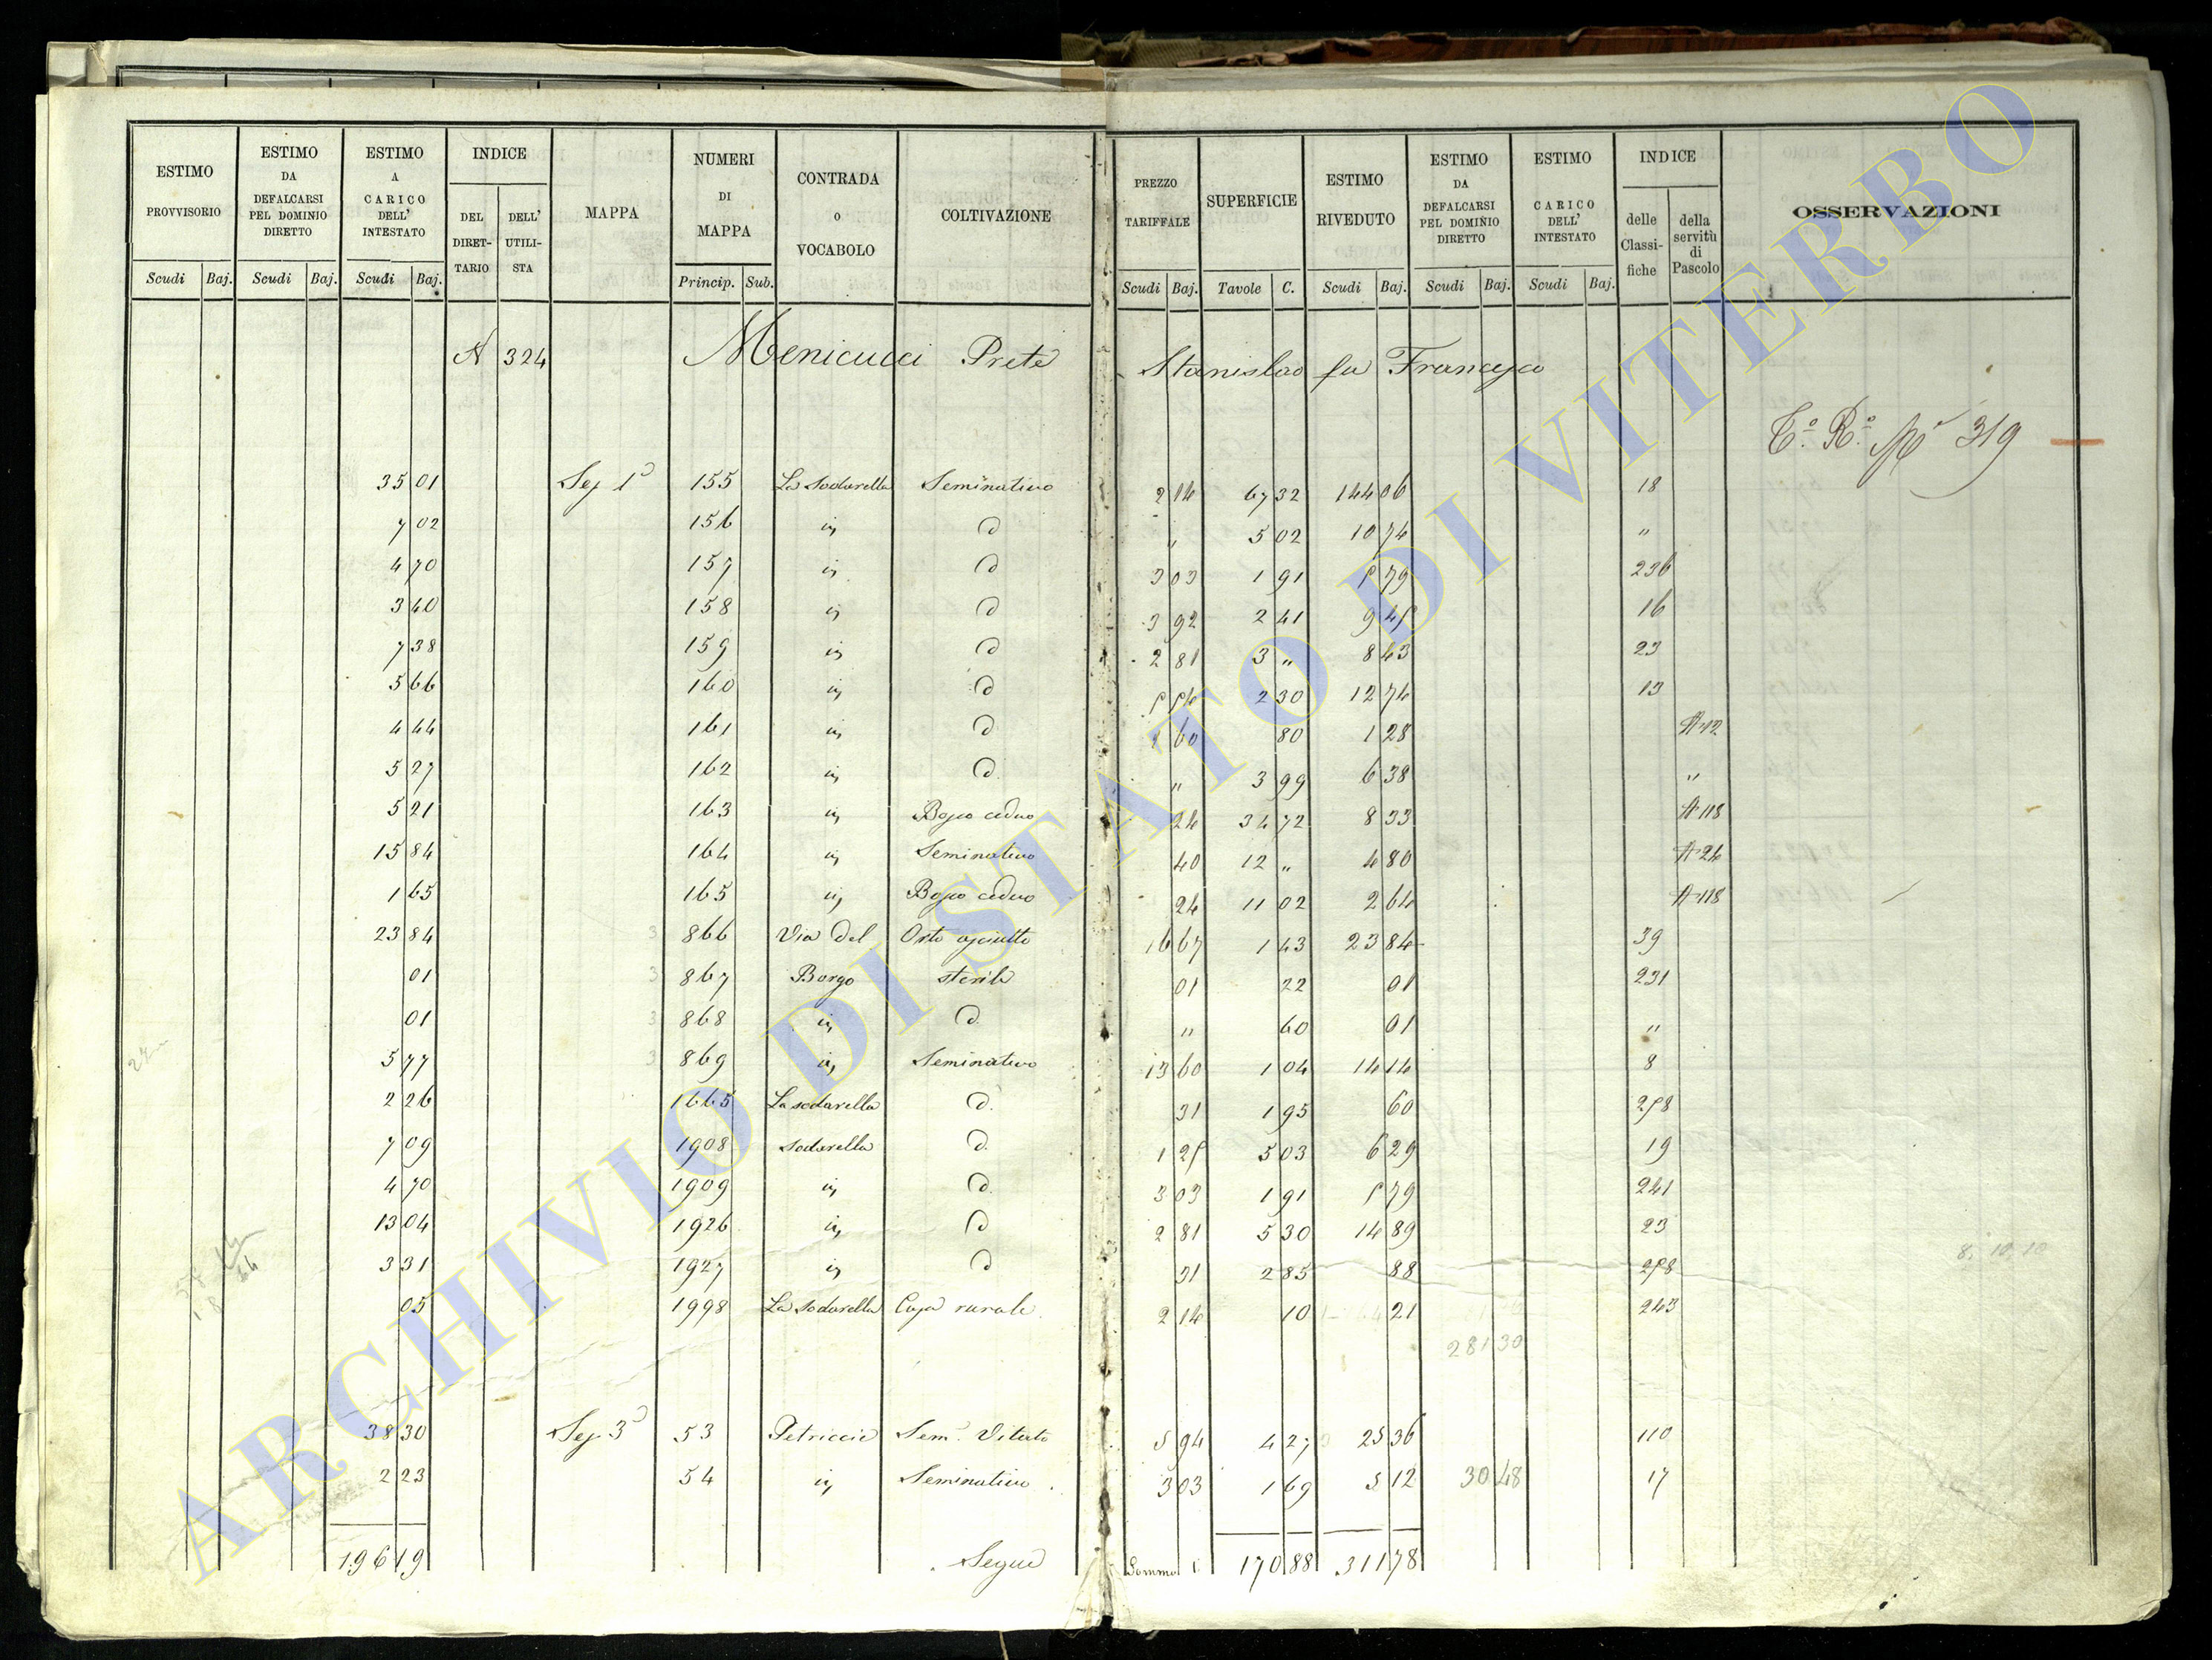 ESTIMO PROVVISORIO | ESTIMO DA DEFALCARSI PEL DOMINIO DIRETTO | ESTIMO A CARICO DELL' INTESTATO | INDICE | MAPPA | NUMERI DI MAPPA | CONTRADA o VOCABOLO | COLTIVAZIONE | PREZZO TARIFFALE | SUPERFICIE | ESTIMO RIVEDUTO | ESTIMO DA DEFALCARSI PEL DOMINIO DIRETTO | ESTIMO A CARICO DELL' INTESTATO | INDICE | OSSERVAZIONI
DEL DIRETTARIO | DELL' UTILISTA | delle Classifiche | della servitù di Pascolo
Scudi | Baj. | Scudi | Baj. | Scudi | Baj. | Princip. | Sub. | Scudi | Baj. | Tavole | C. | Scudi | Baj. | Scudi | Baj. | Scudi | Baj.
N 324 Menicucci Prete Stanislao fu Francesco
Co. Ro. No 319
35 01 | Sez 1a | 155 | La Sodarella | Seminativo | 2 14 | 67 32 | 144 06 | 18
7 02 | 156 | in | d | " | 5 02 | 10 74 | "
4 70 | 157 | in | d | 3 03 | 1 91 | 5 79 | 236
3 40 | 158 | in | d | 3 92 | 2 41 | 9 45 | 16
7 38 | 159 | in | d | 2 81 | 3 " | 8 43 | 23
5 66 | 160 | in | d | 5 54 | 2 30 | 12 74 | 13
4 44 | 161 | in | d | 1 60 | 80 | 1 28 | A 12
5 27 | 162 | in | d. | " | 3 99 | 6 38 | "
5 21 | 163 | in | Bosco ceduo | 24 | 34 72 | 8 33 | A 118
15 84 | 164 | in | Seminativo | 40 | 12 " | 4 80 | A 24
1 65 | 165 | in | Bosco ceduo | 24 | 11 02 | 2 64 | A 118
23 84 | 3 | 866 | Via del | Orto asciutto | 16 67 | 1 43 | 23 84 | 39
01 | 3 | 867 | Borgo | sterile | 01 | 22 | 01 | 231
01 | 3 | 868 | in | d. | " | 60 | 01 | "
5 77 | 3 | 869 | in | Seminativo | 13 60 | 1 04 | 14 14 | 8
2 26 | 1665 | La sodarella | d. | 31 | 1 95 | 60 | 258
7 09 | 1908 | sodarella | d. | 1 25 | 5 03 | 6 29 | 19
4 70 | 1909 | in | d. | 3 03 | 1 91 | 5 79 | 241
13 04 | 1926 | in | d | 2 81 | 5 30 | 14 89 | 23
3 31 | 1927 | in | d | 31 | 2 85 | 88 | 258
8. 10 10
05 | 1998 | La Sodarella | Casa rurale. | 2 14 | 10 | 21 | 243
281 30
38 30 | Sez 3a | 53 | Petriccie | Sem. Vitato | 5 94 | 4 27 | 25 36 | 110
2 23 | 54 | in | Seminativo. | 3 03 | 1 69 | 5 12 | 30 48 | 17
196 19 | Segue | Somma | 170 88 | 311 78
ARCHIVIO DI STATO DI VITERBO